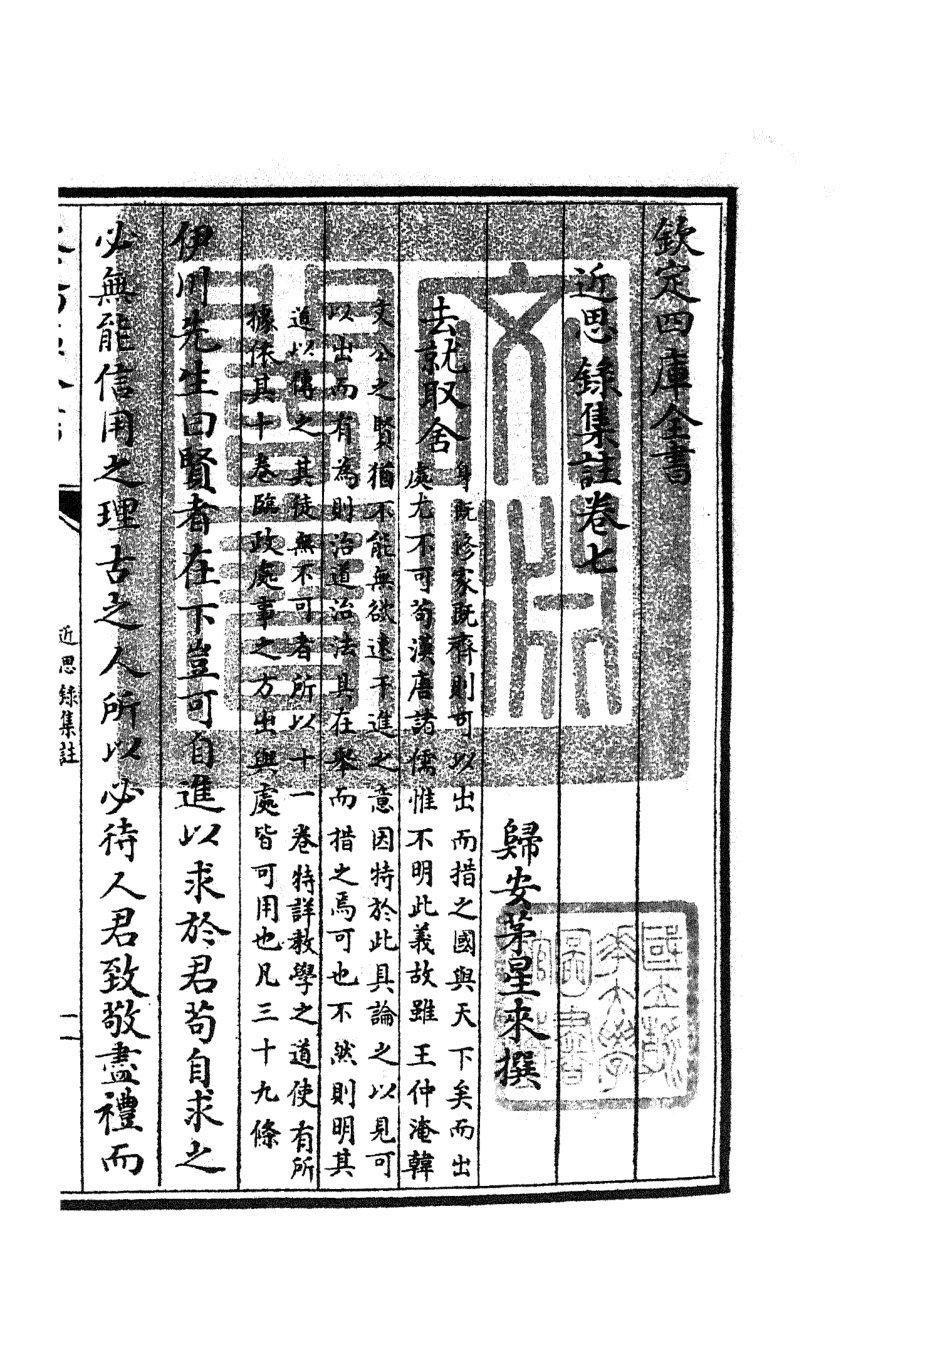 欽定四庫全書
近思錄集註卷七
歸安茅星來撰
去就取舍
身既修家既齊則可以出而措之國與天下矣而出
處尤不可苟漢唐諸儒惟不明此義故雖王仲淹韓
文公之賢猶不能無欲速干進之意因特於此具論之以見可
以出而有為則治道治法具在舉而措之焉可也不然則明其
道以傳之其徒無不可者所以十一卷特詳教學之道使有所
據依其十卷臨政處事之方出與處皆可用也凡三十九條
伊川先生曰賢者在下豈可自進以求於君苟自求之
必無能信用之理古之人所以必待人君致敬盡禮而
近思錄集註
一
文淵閣寶